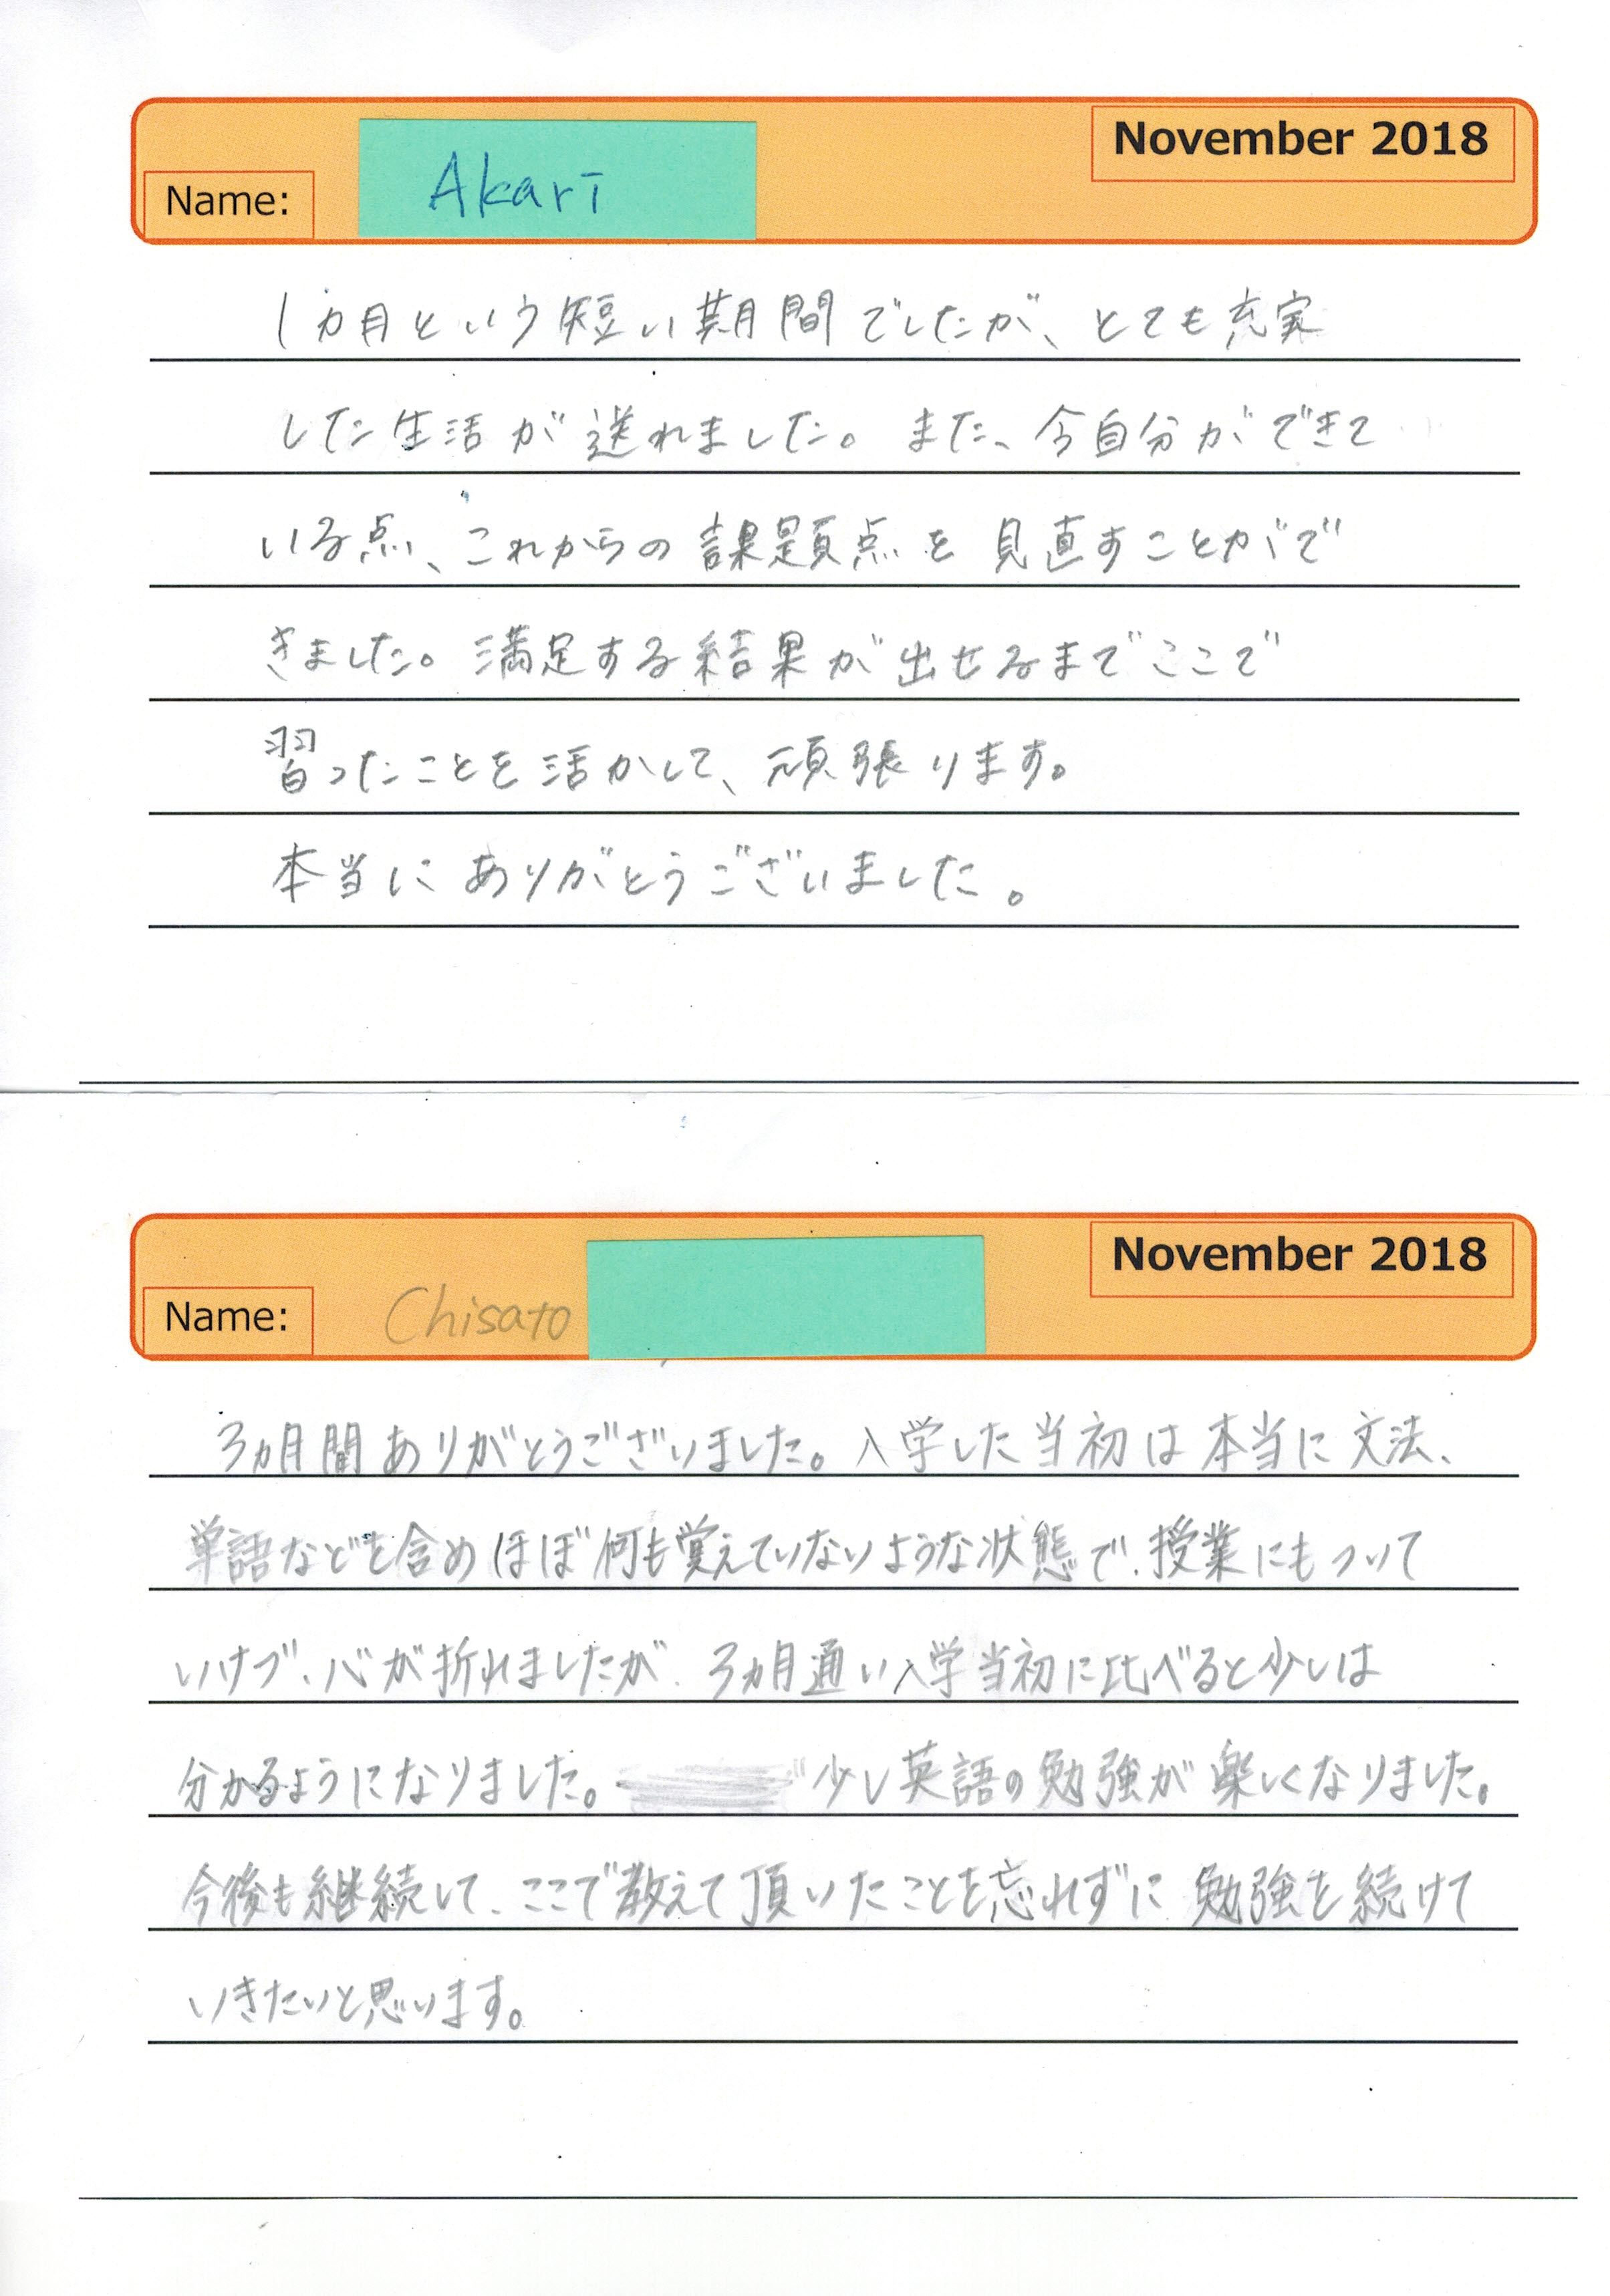 November 2018
Name: Akari
1ヵ月という短い期間でしたが、とても充実
した生活が送れました。また、今自分ができて
いる点、これからの課題点を見直すことがで
きました。満足する結果が出せるまでここで
習ったことを活かして、頑張ります。
本当にありがとうございました。
November 2018
Name: Chisato
3ヵ月間ありがとうございました。入学した当初は本当に文法、
単語などを含めほぼ何も覚えていないような状態で、授業にもついて
いけず、心が折れましたが、3ヵ月通い入学当初に比べると少しは
分かるようになりました。少し英語の勉強が楽しくなりました。
今後も継続して、ここで教えて頂いたことを忘れずに勉強を続けて
いきたいと思います。